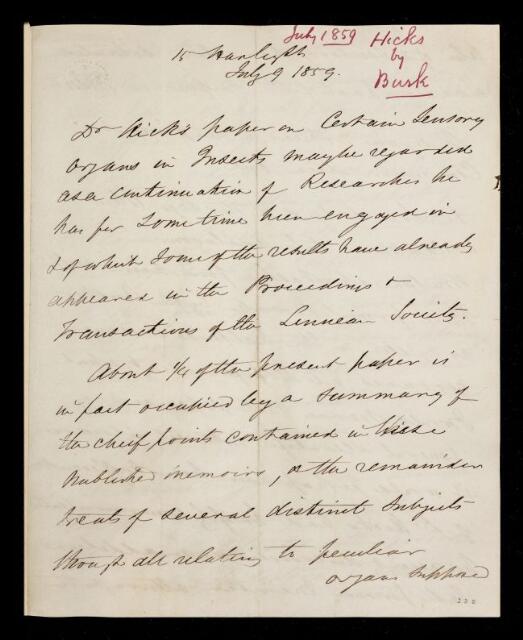 July 1859 Hicks
by
Busk
15 Harley St
July 9 1859.
Dr Hicks's paper on Certain Sensory
Organs in Insects may be regarded
as a Continuation of Researches he
has for some time been engaged in
& of which some of the results have already
appeared in the Proceedings &
Transactions of the Linnean Society.
About 1/4 of the present paper is
in part occupied by a summary of
the cheif points contained in these
Published memoirs, & the remainder
treats of several distinct subjects
though all relating to peculiar
organs supposed